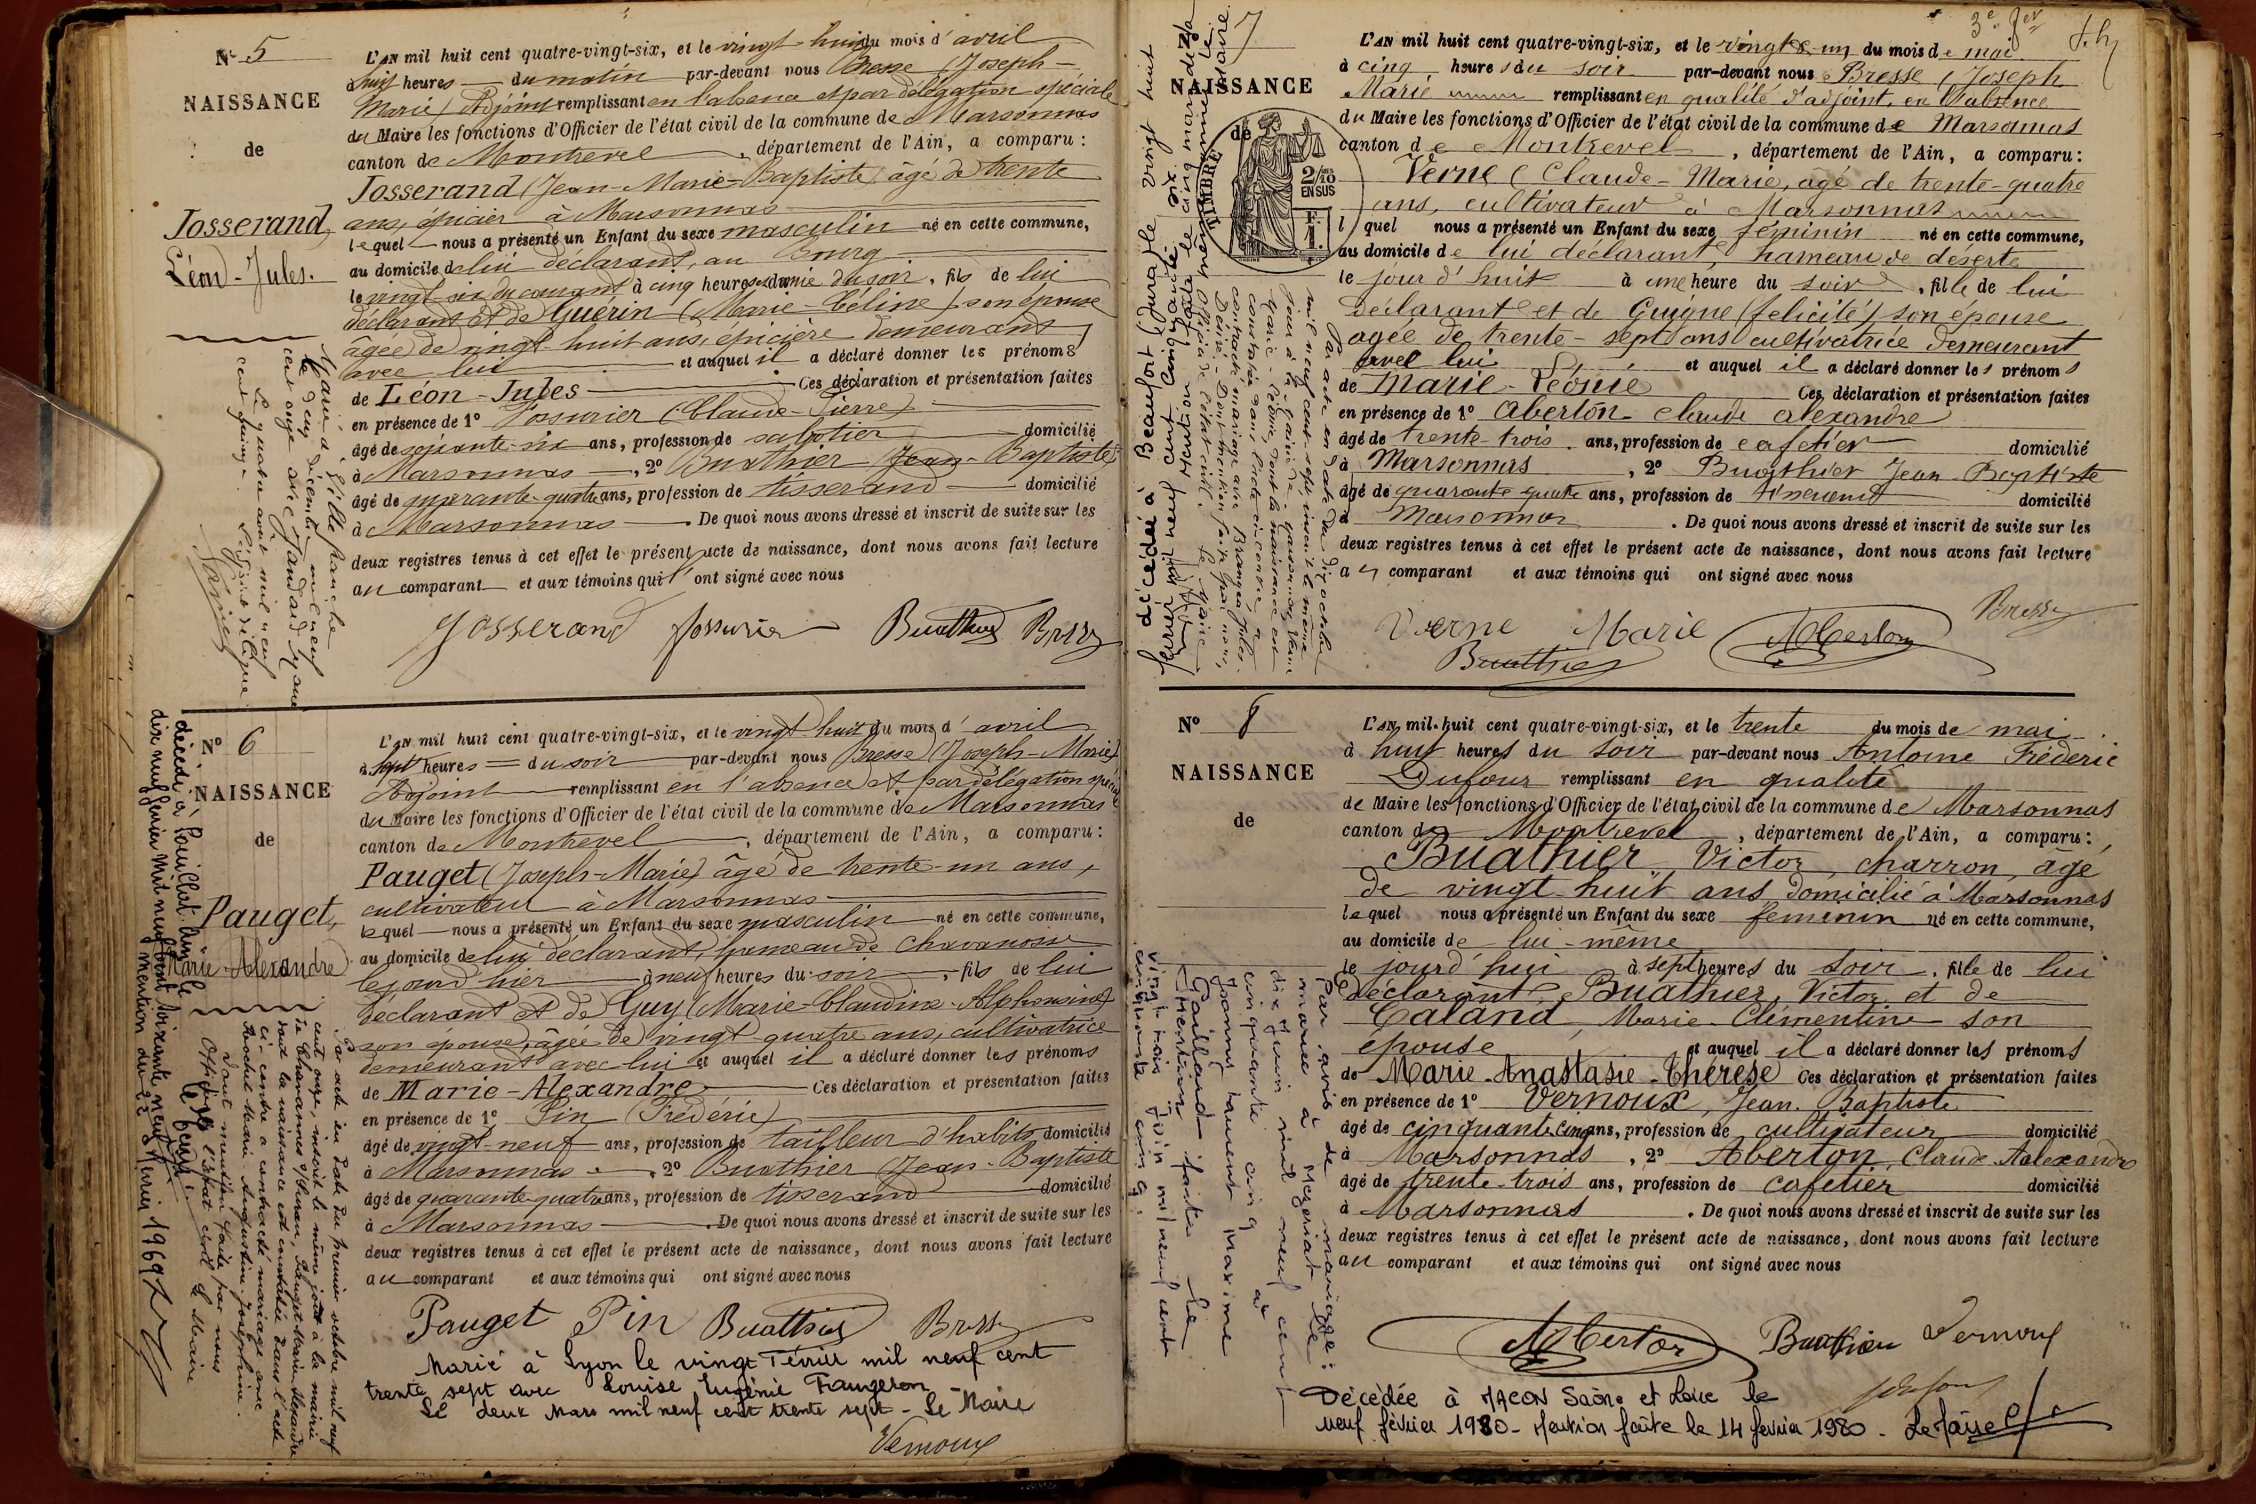 N° 5
NAISSANCE
de
Josserand,
Léon-Jules.
L'AN mil huit cent quatre-vingt-six, et le vingt-huit du mois d'avril
à huit heures du matin par-devant nous Bresse (Joseph-
Marie) Adjoint remplissant en l'absence et par délégation spéciale
du Maire les fonctions d'Officier de l'état civil de la commune de Marsonnas
canton de Montrevel, département de l'Ain, a comparu:
Josserand (Jean-Marie-Baptiste) âgé de trente
ans, épicier à Marsonnas
lequel nous a présenté un Enfant du sexe masculin né en cette commune,
au domicile de lui déclarant, au Bourg
le vingt-six du courant à cinq heures du soir, fils de lui
déclarant et de Guérin (Marie-Céline) son épouse
âgée de vingt-huit ans, épicière demeurant
avec lui et auquel il a déclaré donner les prénoms
de Léon-Jules Ces déclaration et présentation faites
en présence de 1° (Claude-Pierre)
âgé de soixante-six ans, profession de sabotier domicilié
à Marsonnas, 2° Buathier Jean-Baptiste
âgé de quarante-quatre ans, profession de tisserand domicilié
à Marsonnas. De quoi nous avons dressé et inscrit de suite sur les
deux registres tenus à cet effet le présent acte de naissance, dont nous avons fait lecture
au comparant et aux témoins qui l'ont signé avec nous
Josserand Buathier Bresse
Marié à
le deux décembre mil neuf
cent onze avec Jandard Marie
Le quatre août mil neuf
cent quinze.
N° 6
NAISSANCE
de
Pauget,
Marie-Alexandre
L'AN mil huit cent quatre-vingt-six, et le vingt-huit du mois d'avril
à sept heures du soir par-devant nous Bresse (Joseph-Marie)
Adjoint remplissant en l'absence et par délégation spéciale
du Maire les fonctions d'Officier de l'état civil de la commune de Marsonnas
canton de Montrevel, département de l'Ain, a comparu:
Pauget (Joseph-Marie) âgé de trente-un ans,
cultivateur à Marsonnas
lequel nous a présenté un Enfant du sexe masculin né en cette commune,
au domicile de lui déclarant, hameau de Chavanosse
le jour d'hier à neuf heures du soir, fils de lui
déclarant et de Guy (Marie-Claudine-Alphonsine)
son épouse, âgée de vingt-quatre ans, cultivatrice
demeurant avec lui et auquel il a déclaré donner les prénoms
de Marie-Alexandre Ces déclaration et présentation faites
en présence de 1° Pin (Frédéric)
âgé de vingt-neuf ans, profession de tailleur d'habits domicilié
à Marsonnas, 2° Buathier (Jean-Baptiste
âgé de quarante-quatre ans, profession de tisserand domicilié
à Marsonnas. De quoi nous avons dressé et inscrit de suite sur les
deux registres tenus à cet effet le présent acte de naissance, dont nous avons fait lecture
au comparant et aux témoins qui ont signé avec nous
Pauget Pin Buathier Bresse
Marié à Lyon le vingt Février mil neuf cent
trente sept avec Louise Eugénie Faugeron
Le deux Mars mil neuf cent trente sept - Le Maire
Vernoux
décédé à Pouillat Ain le
dix neuf février mil neuf cent soixante neuf
mention du 22 février 1969
Par acte en date du premier octobre mil neuf
cent onze, inscrit le même jour à la mairie
de Chavannes s/Suran, Pauget Marie Alexandre
dont la naissance est constatée dans l'acte
ci-contre a contracté mariage avec
Marie Augustine Joséphine.
Dont mention faite par nous
Officier de l'état civil Le Maire
N° 7
NAISSANCE
de
TIMBRE
2/10
EN SUS
L'AN mil huit cent quatre-vingt-six, et le vingt-un du mois de mai
à cinq heures du soir par-devant nous Bresse (Joseph
Marie remplissant en qualité d'adjoint, en l'absence
du Maire les fonctions d'Officier de l'état civil de la commune de Marsonnas
canton de Montrevel, département de l'Ain, a comparu:
Verne (Claude-Marie, âgé de trente-quatre
ans, cultivateur à Marsonnas
lquel nous a présenté un Enfant du sexe féminin né en cette commune,
au domicile de lui déclarant, hameau de déserte
le jour d'huit à une heure du soir, fille de lui
déclarant et de Guigne (félicité) son épouse
agée de trente-sept ans cultivatrice demeurant
avec lui et auquel il a déclaré donner les prénoms
de Marie-Léonie Ces déclaration et présentation faites
en présence de 1° Aberton-Claude Alexandre
âgé de trente-trois ans, profession de cafetier domicilié
à Marsonnas, 2° Buathier Jean-Baptiste
âgé de quarante-quatre ans, profession de tisserand domicilié
à Marsonnas. De quoi nous avons dressé et inscrit de suite sur les
deux registres tenus à cet effet le présent acte de naissance, dont nous avons fait lecture
au comparant et aux témoins qui ont signé avec nous
Verne Marie Aberton Bresse
Buathier
décédée à Beaufort (Jura) le vingt huit
février mil neuf cent cinquante six.
Mention faite le cinq mars
Par acte en date du dix octobre
mil neuf cent sept, inscrit le même
jour à la mairie de Marsonnas, Verne
Marie-Léonie, dont la naissance est
constatée dans l'acte ci-contre a
contracté mariage avec Jules
Désiré. Dont mention faite par nous,
Officier de l'état civil. Le Maire
N° 8
NAISSANCE
de
L'AN mil huit cent quatre-vingt-six, et le trente du mois de mai
à huit heures du soir par-devant nous Antoine Frédéric
Dufour remplissant en qualité
de Maire les fonctions d'Officier de l'état civil de la commune de Marsonnas
canton de Montrevel, département de l'Ain, a comparu:
Buathier Victor, charron, agé
de vingt huit ans domicilié à Marsonnas
lequel nous a présenté un Enfant du sexe feminin né en cette commune,
au domicile de lui-même
le jourd'hui à sept heures du soir, fille de lui
déclarant, Buathier, Victor et de
Caland, Marie-Clémentine son
épouse et auquel il a déclaré donner les prénoms
de Marie-Anastasie-Thérèse Ces déclaration et présentation faites
en présence de 1° Vernoux, Jean-Baptiste
âgé de cinquante cinq ans, profession de cultivateur domicilié
à Marsonnas, 2° Aberton, Claude Aalexandre
âgé de trente-trois ans, profession de cafetier domicilié
à Marsonnas. De quoi nous avons dressé et inscrit de suite sur les
deux registres tenus à cet effet le présent acte de naissance, dont nous avons fait lecture
au comparant et aux témoins qui ont signé avec nous
Aberton Buathier Vernoux
Dufour
Décédée à MACON Saône et Loire le
neuf février 1980 - Mention faite le 14 février 1980 - Le Maire
Par avis de mariage:
mariée à Mézériat le
dix juin mil neuf cent
cinquante cinq à
Laurent Maxime
Gaillard
Mention faite le
vingt trois juin mil neuf cent
cinquante cinq.